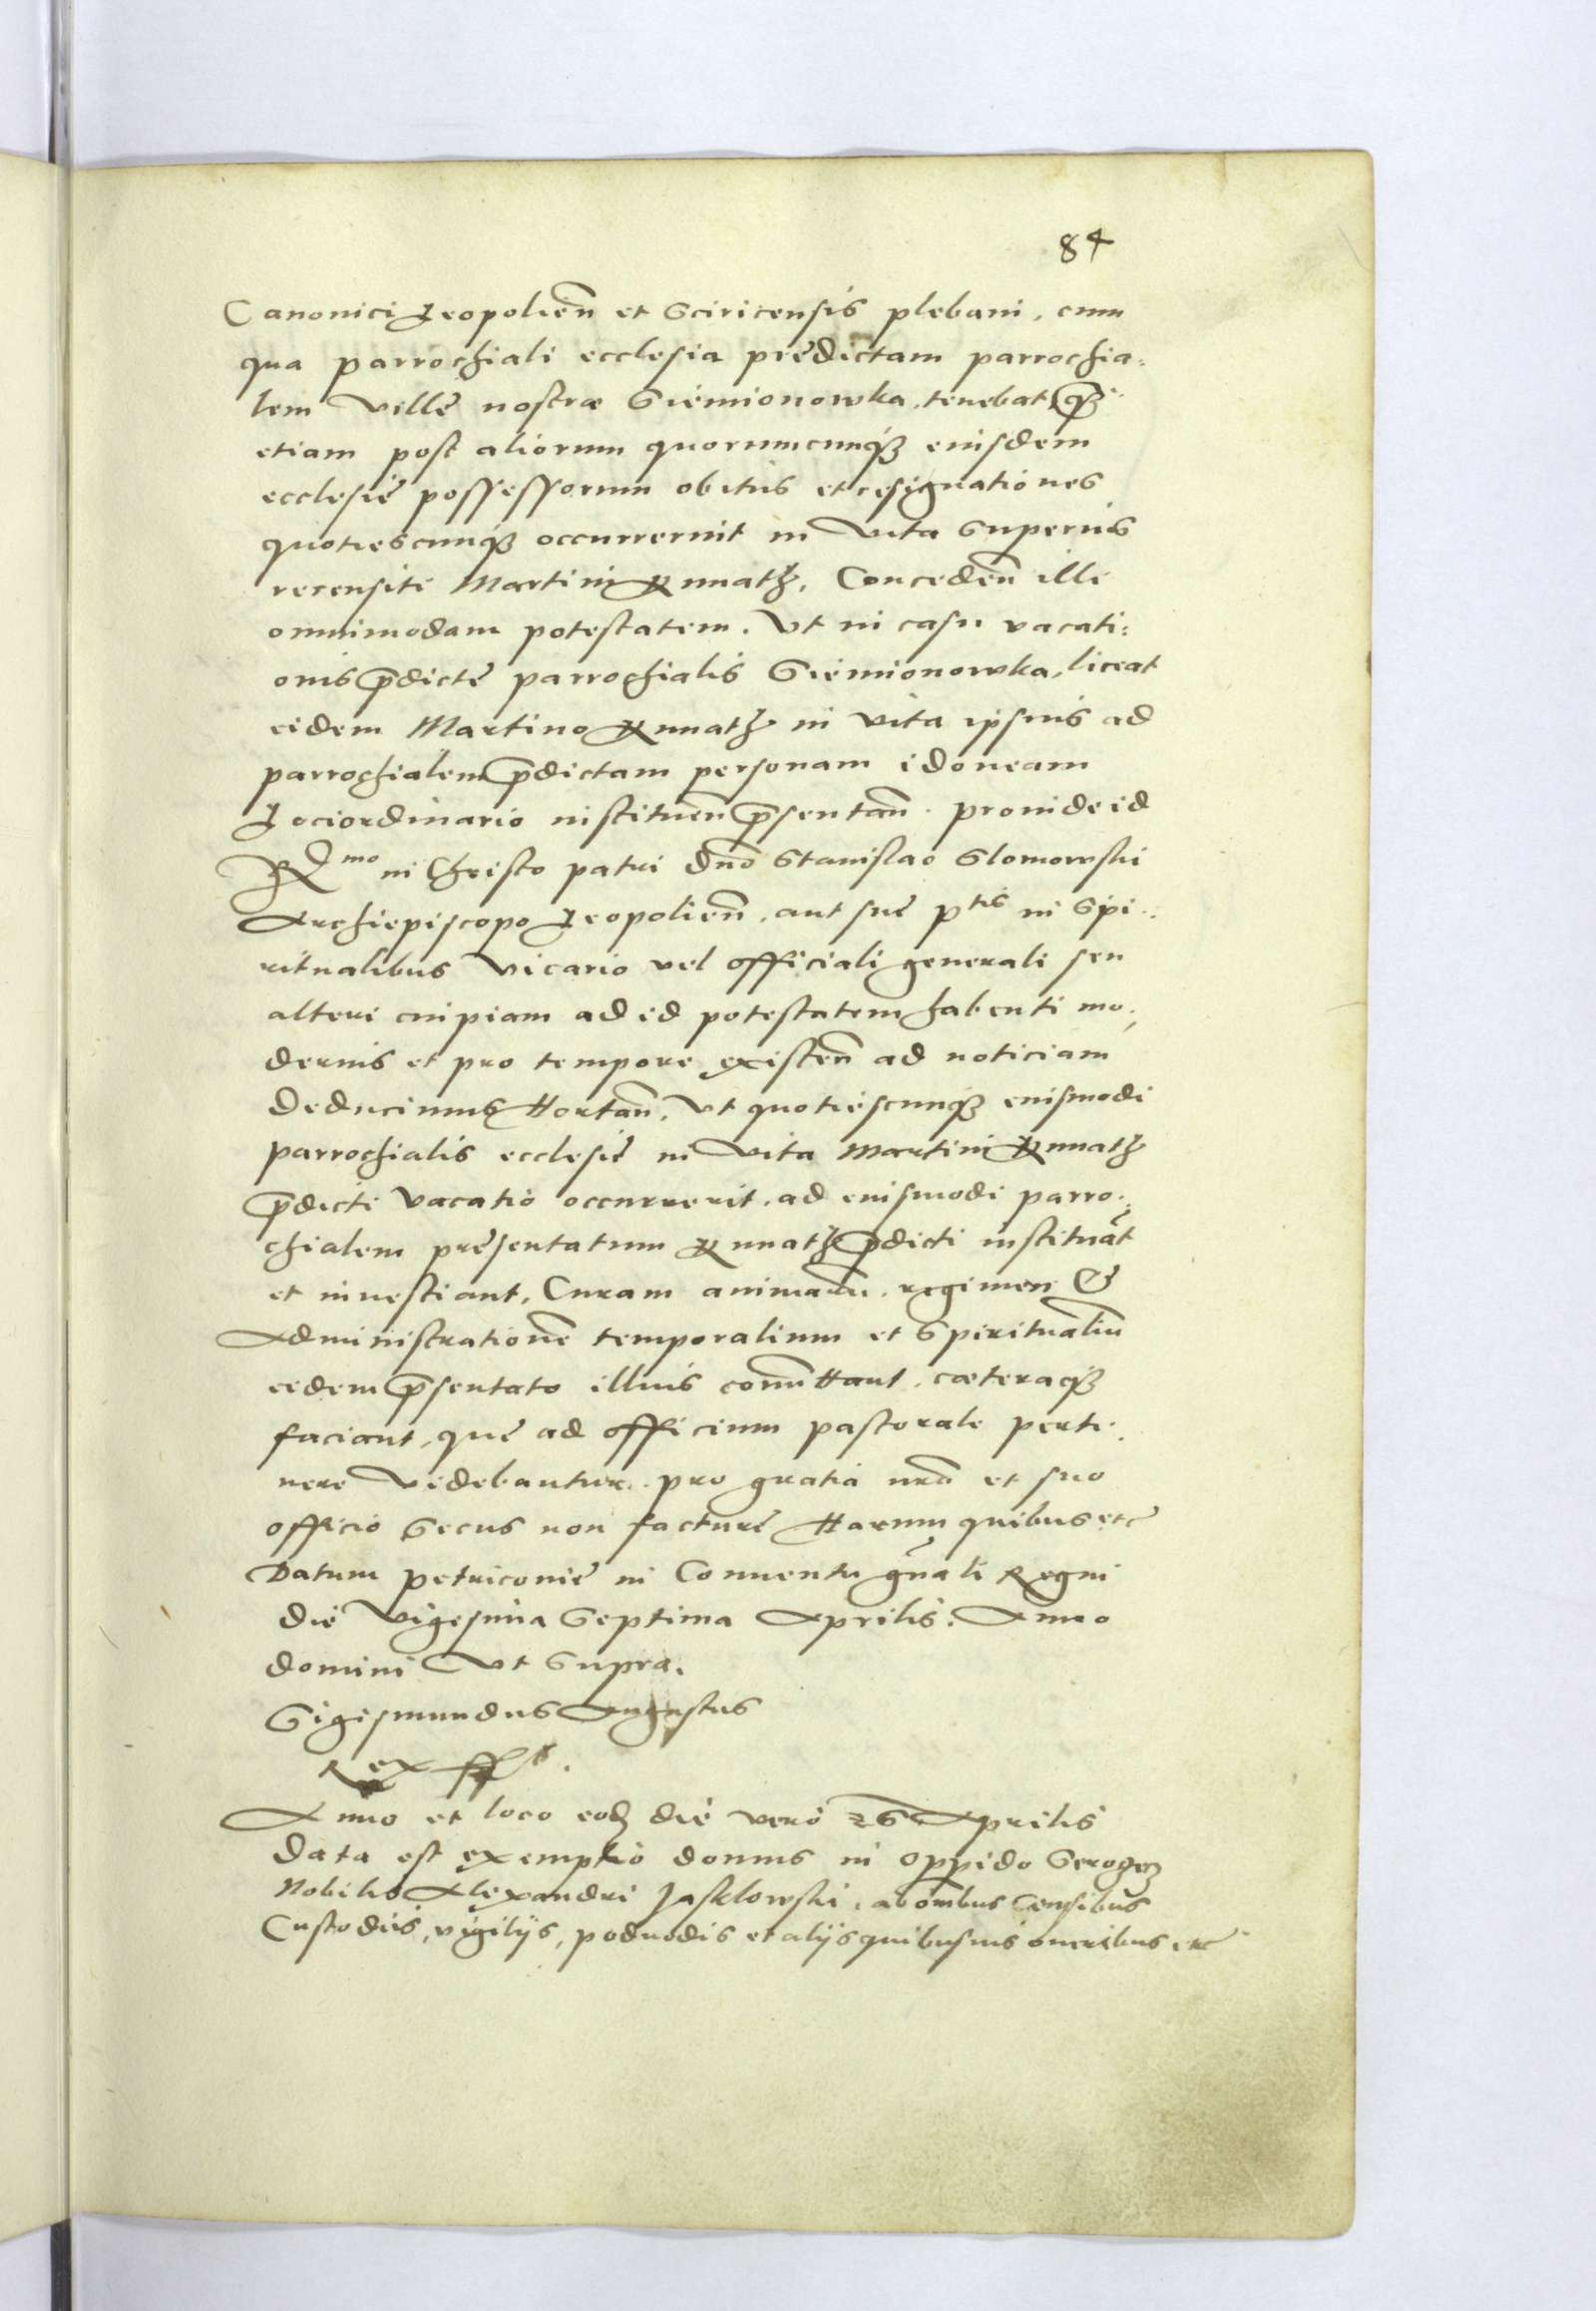 84
Canonici Leopolien̄ et Sciricensis plebani, cum
qua parrochiali ecclesia prędictam parrochia-
lem villę nostræ Siemionowka tenebat, q̃
etiam post aliorum quorumcunq3 eiusdem
ecclesię possessorum obitus et resignationes
quotiescunq3 occurrerint in vita superius
recensiti Martini Kunath, Conceden̄ illi
omnimodam potestatem. Vt in casu vacati-
onis p̄dictę parrochialis Siemionowka, liceat
eidem Martino Kunath in vita ipsius ad
parrochialem p̄dictam personam idoneam
Loci ordinario instituen̄ p̄sentan̄. Proinde id
Rd̄mo in Christo patri dn̄o Stanislao Slomowski
Archiepiscopo Leopolien̄, aut suę ptis in Spi-
ritualibus vicario vel officiali generali seu
alteri cuipiam ad id potestatem habenti mo-
dernis et pro tempore existen̄ ad noticiam
deducimus Hortan̄, Vt quotiescunq3 eiusmodi
parrochialis ecclesię in vita Martini Kunath
p̄dicti vacatio occurrerit, ad eiusmodi parro-
chialem pręsentatum Kunath p̄dicti instituāt
et inuestiant, Curam animarū, regimen &
Administrationē temporalium et Spiritualiū
eidem p̄sentato illius com̄ittant, cæteraq3
faciant, quę ad officium pastorale perti-
nere videbantur. pro gratia nr̄a et suo
officio Secus non facturi Harum quibus etc
Datum petricouię in Conuentu gn̄ali Regni
die vigesima Septima Aprilis. Anno
domini Vt Supra.
Sigismundus Augustus
Rex sst.
Anno et loco eod̄ die vero 26 Aprilis
Data est exemptio domus in oppido
Nobilis Alexandri Jasklowski, ab om̄ibus Censibus
Custodiis, vigilijs, poduodis et alijs quibusuis oneribus etc